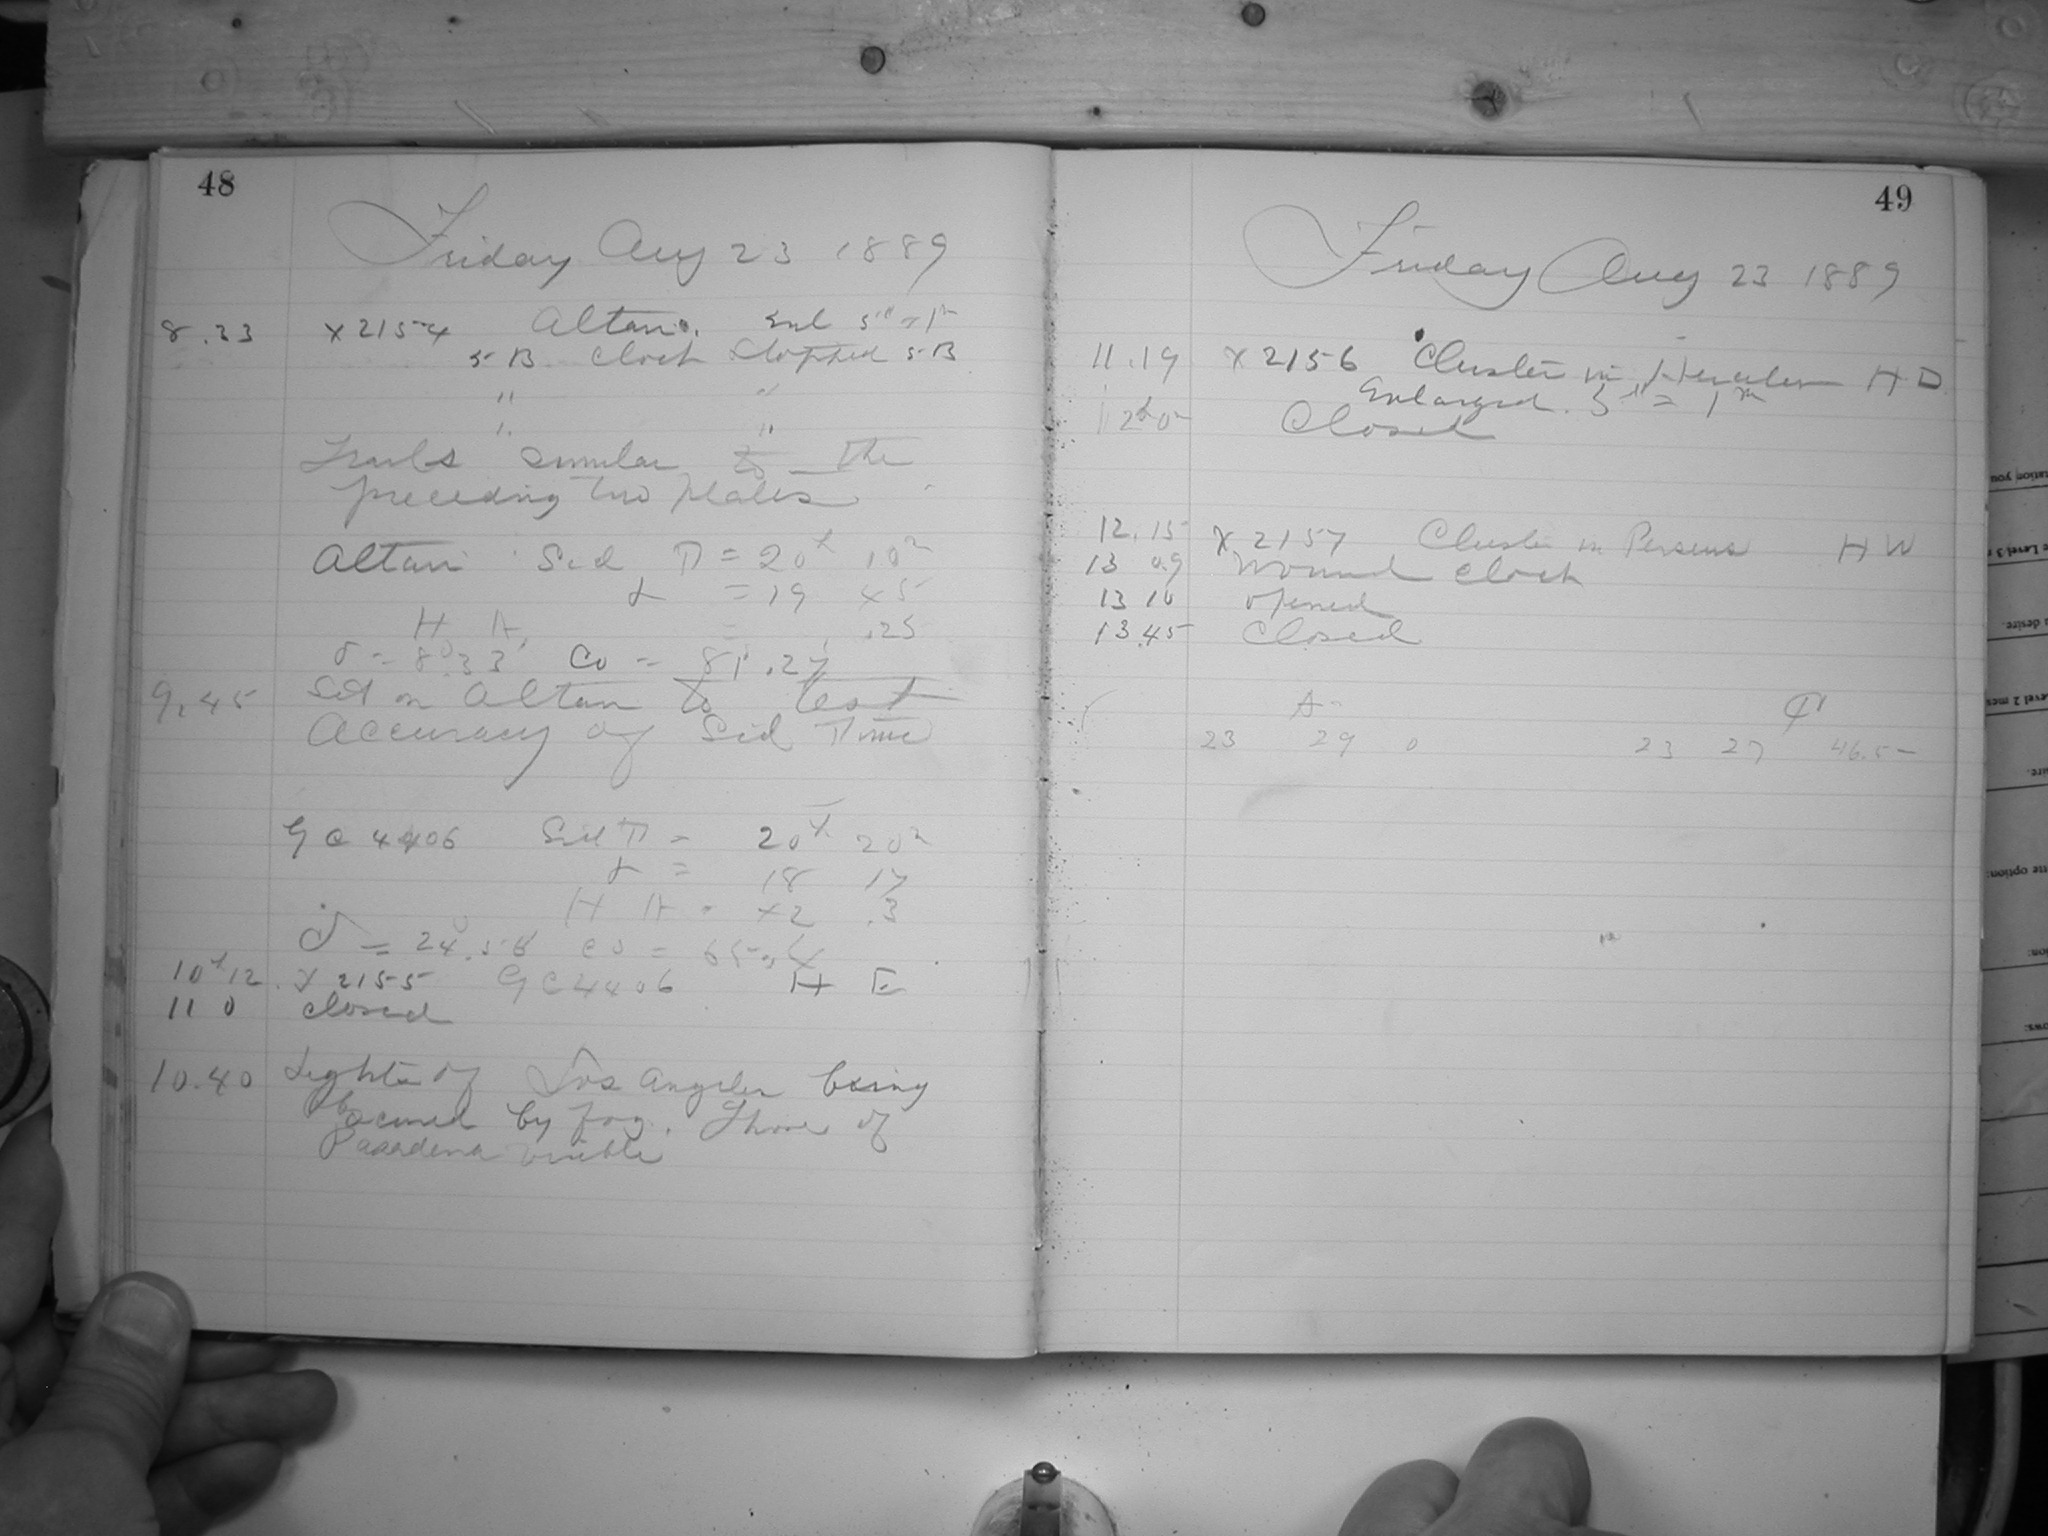 48
Friday Aug 23 1889
8.33 X2154 Altair. Enl 5" = 1m
5 B Clock Stopped 5 B
" "
" "
Trails similar to the
preceding two plates
Altair Sid T = 20h 10m
α = 19 45
H A, = .25
δ = 8° 33' Co = 81.27
9.45 Set on Altair to test
Accuracy of Sid Time
G C 4406 Sid T = 20h 20m
α = 18 17
H A = +2 .3
δ = 24°.56 co = 65.4
10h12. X 2155 G C 4406 H E
11 0 closed
10.40 Lights of Los Angeles being
obscured by fog. Those of
Pasadena visible
49
Friday Aug 23 1889
11.19 X 2156 Cluster in Hercules H D
Enlarged. 5" = 1m
Closed
12.15 X 2157 Cluster in Perseus H W
13 09 Wound clock
13 10 opened
13.45 Closed
A
23 29 0 23 27 46.5